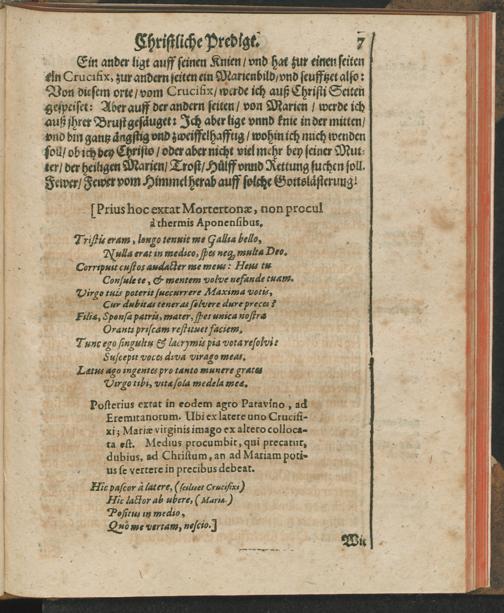 Christliche Predigt. 7
Ein ander ligt auff seinen Knien / vnd hat zur einen seiten
ein Crucifix, zur andern seiten ein Marienbild / vnd seufftzet also:
Von diesem orte / vom Crucifix / werde ich auß Christi Seiten
gespeiset: Aber auff der andern seiten / von Marien / werde ich
auß jhrer Brust gesäuget: Ich aber lige vnnd knie in der mitten /
vnd bin gantz ängstig vnd zweiffelhafftig / wohin ich mich wenden
soll / ob ich bey Christo / oder aber nicht viel mehr bey seiner Mut-
ter / der heiligen Marien / Trost / Hülff vnnd Rettung suchen soll.
Fewer / Fewer vom Himmel herab auff solche Gottslästerung!
[Prius hoc extat Mortertonæ, non procul
à thermis Aponensibus.
Tristis eram, longo tenuit me Gallia bello,
Nulla erat in medico, spes neq, multa Deo.
Corripuit custos audacter me meus: Heus tu
Consule te, & mentem volve nefande tuam.
Virgo tuis poterit succurrere Maxima votis,
Cur dubitas teneras solvere dure preces?
Filia, Sponsa patris, mater, spes unica nostræ
Oranti priscam restituet faciem.
Tunc ego singultu & lacrymis pia vota resolvi:
Suscepit voces diva virago meas.
Lætus ago ingentes pro tanto munere grates
Virgo tibi, vita sola medela mea.
Posterius extat in eodem agro Patavino, ad
Eremitanorum. Ubi ex latere uno Crucifi-
xi; Mariæ virginis imago ex altero colloca-
ta est. Medius procumbit, qui precatur,
dubius, ad Christum, an ad Mariam poti-
us se vertere in precibus debeat.
Hic pascor à latere, (scilicet Crucifixi)
Hic lactor ab ubere, (Mariæ.)
Positus in medio,
Quò me vertam, nescio.]
Wir